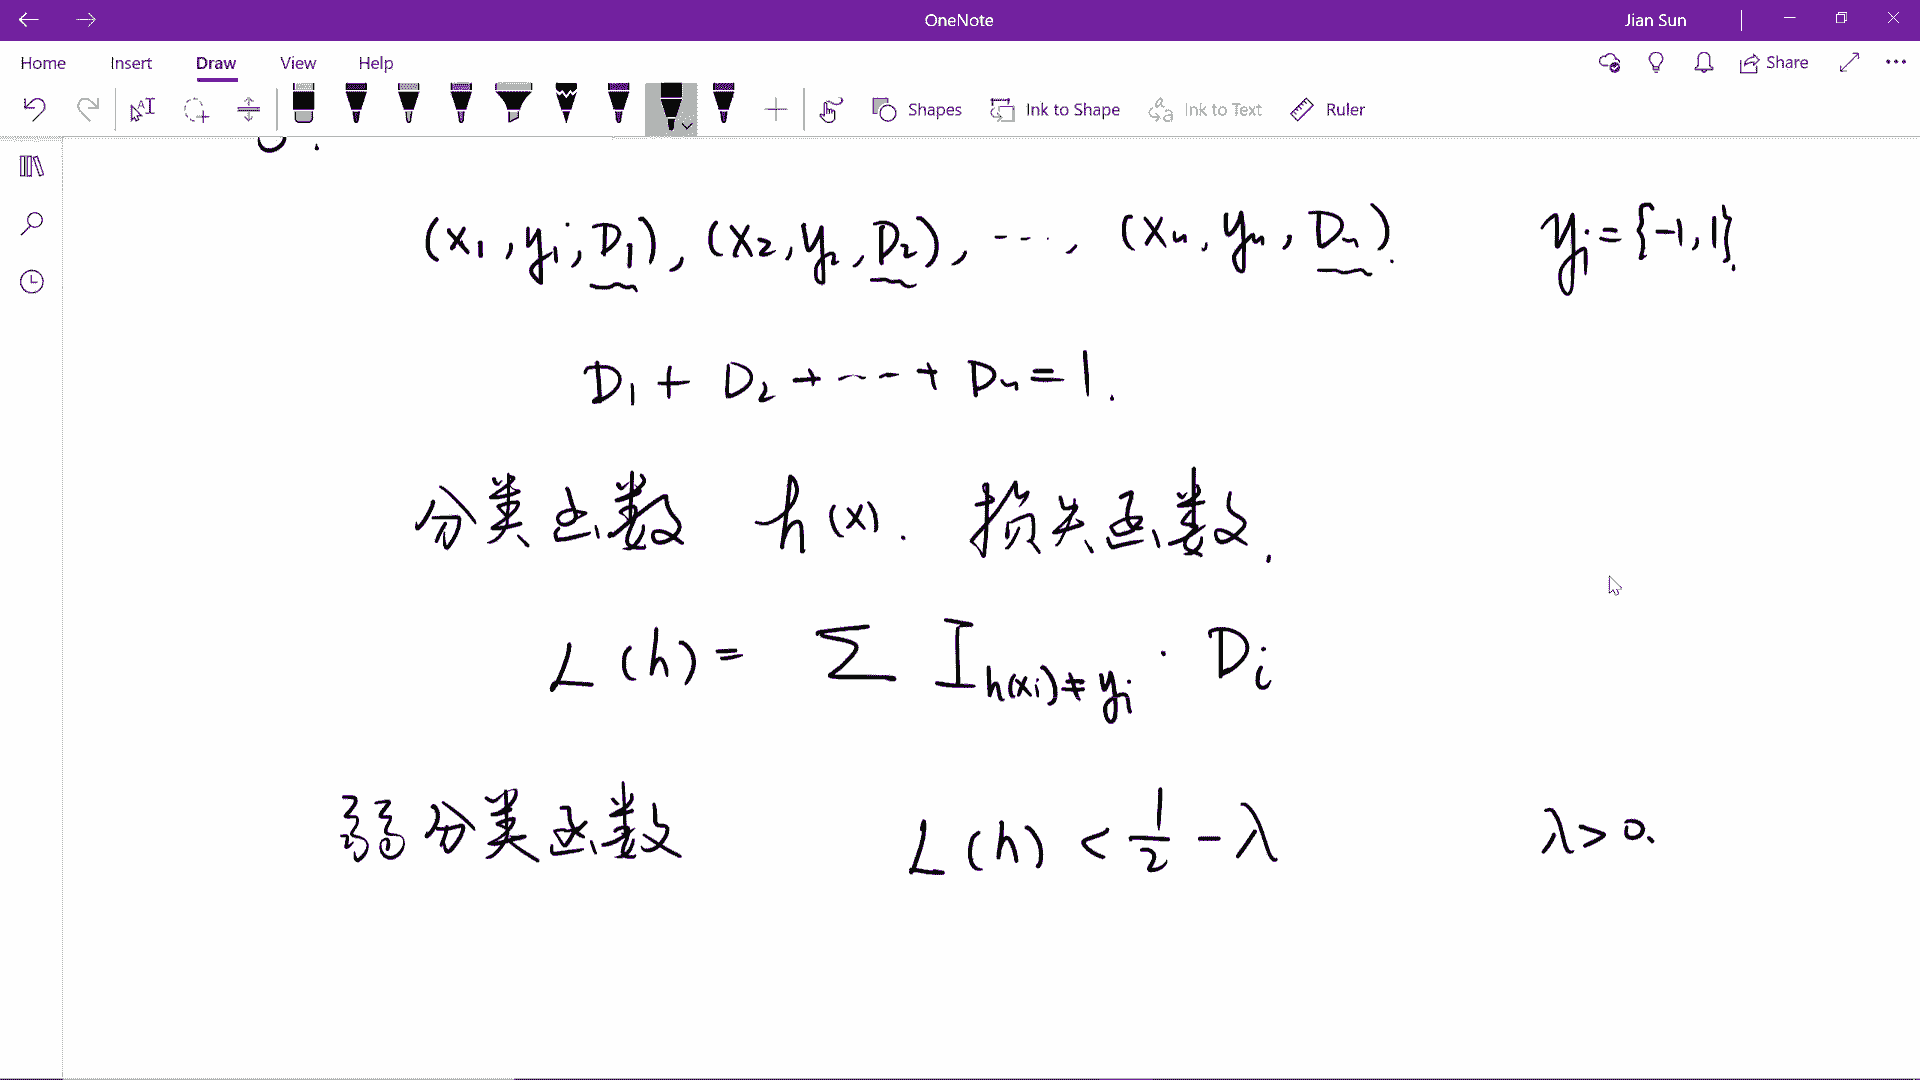 OneNote
Jian Sun
Home Insert Draw View Help
Share
Shapes Ink to Shape Ink to Text Ruler
(x₁, yᵢ, D₁), (x₂, y₂, D₂), ---, (xₙ, yₙ, Dₙ). yᵢ = {-1, 1}.
D₁ + D₂ + ---- + Dₙ = 1.
分类函数 h(x). 损失函数.
L(h) = ∑ I_{h(xᵢ)≠yᵢ} · Dᵢ
弱分类函数 L(h) < 1/2 - λ λ > 0.